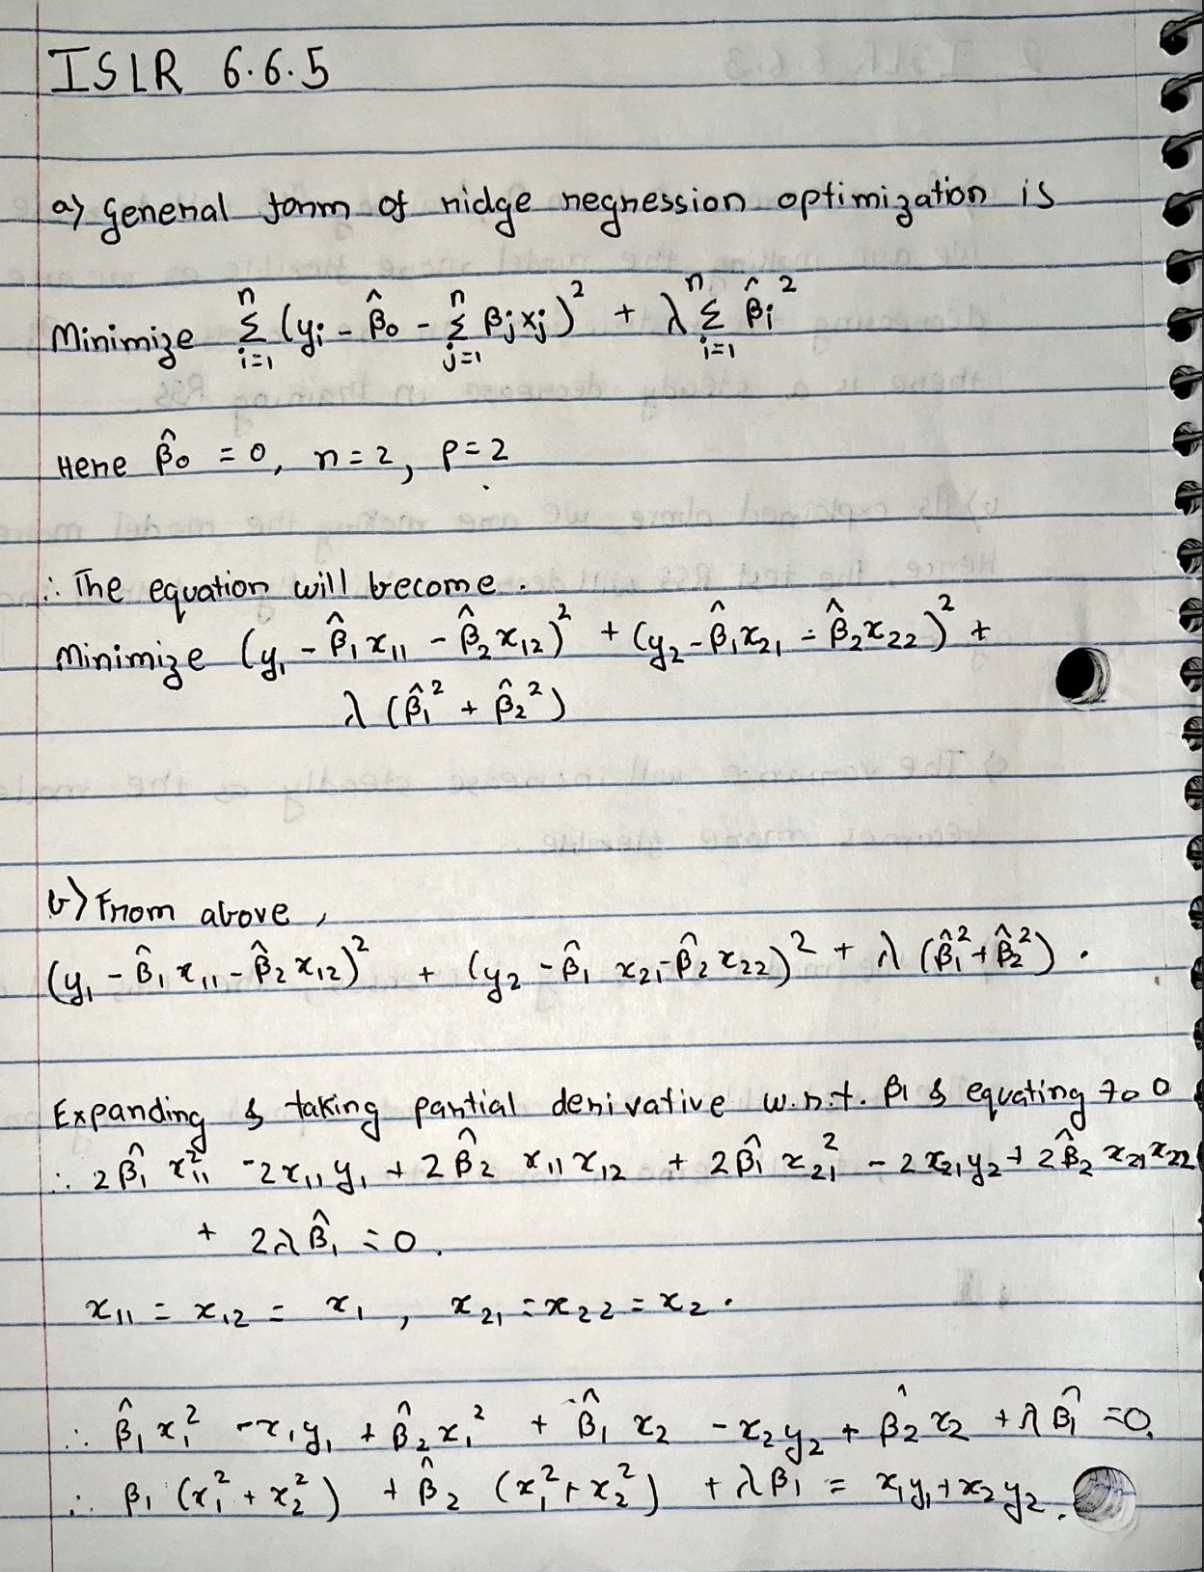 ISLR 6.6.5
a) General form of ridge regression optimization is
Minimize Σ_{i=1}^{n} (yi - β̂0 - Σ_{j=1}^{n} βjxj)² + λ Σ_{i=1}^{n} β̂i²
Here β̂0 = 0, n=2, p=2
∴ The equation will become.
Minimize (y₁ - β̂₁x₁₁ - β̂₂x₁₂)² + (y₂ - β̂₁x₂₁ = β̂₂x₂₂)² +
λ (β̂₁² + β̂₂²)
b) From above,
(y₁ - β̂₁x₁₁ - β̂₂x₁₂)² + (y₂ - β̂₁ x₂₁ - β̂₂x₂₂)² + λ (β̂₁² + β̂₂²).
Expanding & taking partial derivative w.r.t. β1 & equating to 0
∴ 2β̂₁x₁₁² - 2x₁₁y₁ + 2β̂₂ x₁₁x₁₂ + 2β̂₁x₂₁² - 2x₂₁y₂ + 2β̂₂x₂₁x₂₂
+ 2λβ̂₁ = 0.
x₁₁ = x₁₂ = x₁, x₂₁ = x₂₂ = x₂.
∴ β̂₁x₁² - x₁y₁ + β̂₂x₁² + β̂₁x₂ - x₂y₂ + β̂₂x₂ + λβ̂₁ = 0.
∴ β₁(x₁² + x₂²) + β̂₂ (x₁² + x₂²) + λβ₁ = x₁y₁ + x₂y₂.